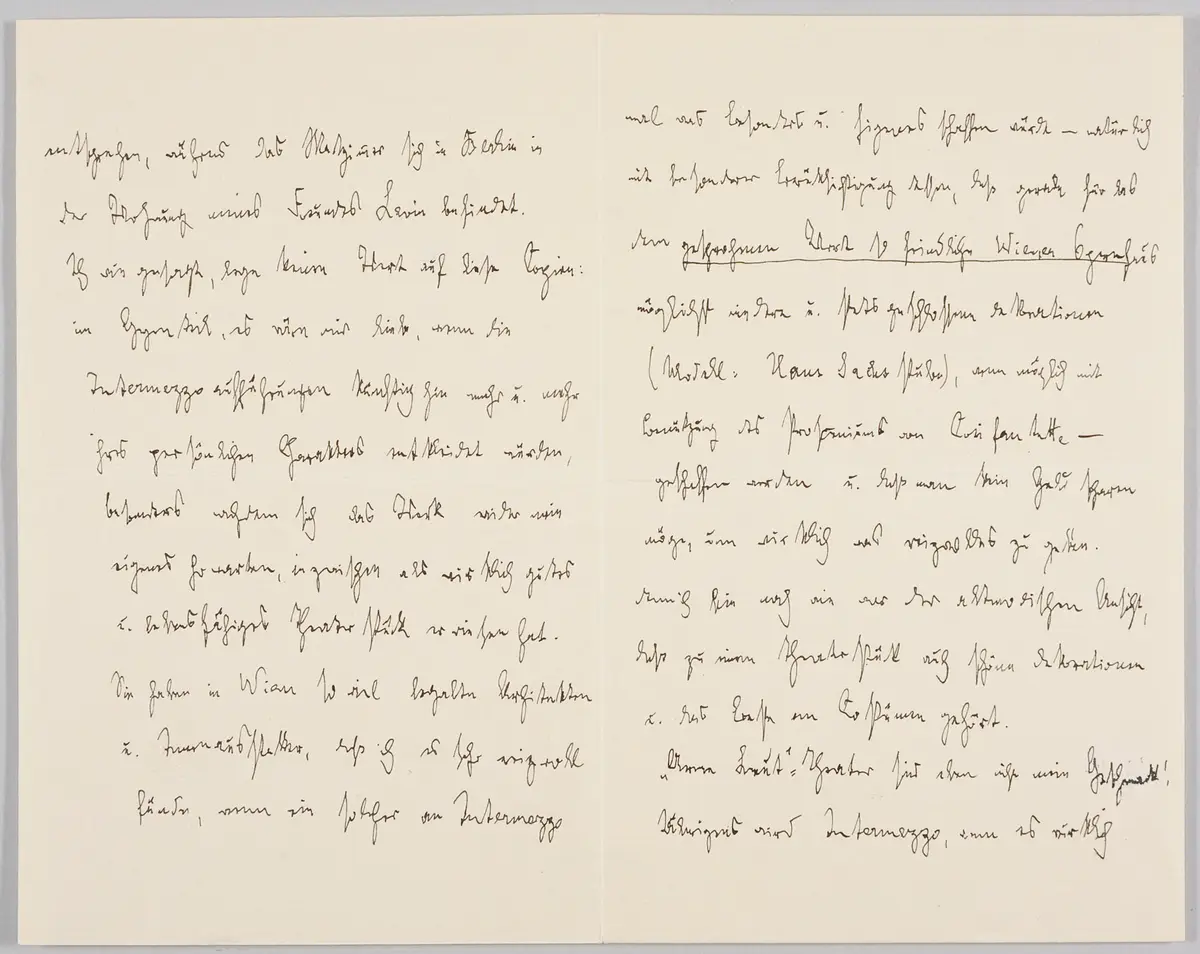 entsprechen, während das Wohnzimmer sich in Berlin in
der Wohnung meines Freundes Levin befindet.
Ich wie gesagt, lege keinen Wert auf diese Copien:
im Gegenteil, es wäre mir lieb, wenn die
Intermezzoaufführungen künftig hin mehr u. mehr
ihres persönlichen Charakters entkleidet würden,
besonders nachdem sich das Werk wider mein
eigenes Erwarten, inzwischen als wirklich gutes
u. lebensfähiges Theaterstück erwiesen hat.
Sie haben in Wien so viel begabte Architekten
u. Innenausstatter, daß ich es sehr reizvoll
fände, wenn ein solcher an Intermezzo
mal was besonderes u. Eigenes schaffen würde – natürlich
mit besonderer Berücksichtigung dessen, daß gerade für das
dem gesprochenen Wort so feindliche Wiener Opernhaus
möglichst niedere u. stets geschlossene Dekorationen
(Modell: Hans Sachs Stube), wenn möglich mit
Benutzung des Prosceniums von Cosi fan tutte –
geschaffen werden u. daß man kein Geld sparen
möge, um wirklich was reizvolles zu geben.
denn ich bin noch wie vor der altmodischen Ansicht,
daß zu einem Theaterstück auch schöne Dekorationen
u. das Beste an Costümen gehört.
„Arme Leut"-Theater sind eben nicht mein Geschmack!
Übrigens wird Intermezzo, wenn es wirklich